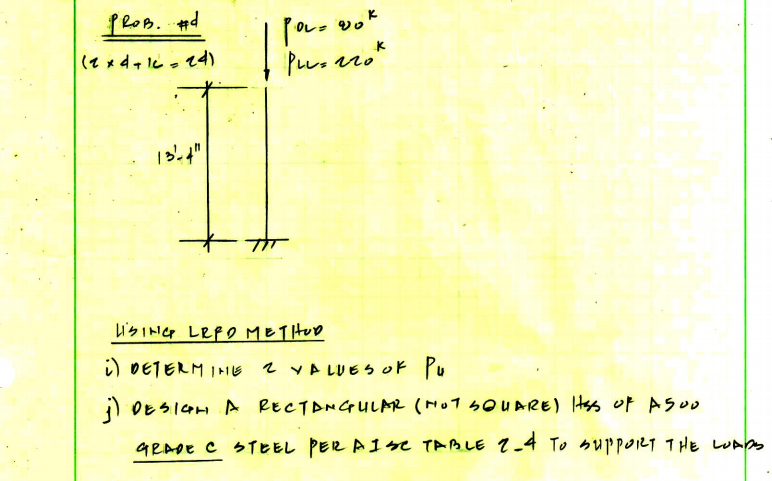 PROB. #4
(2 x 4 + 16 = 24)
PDL = 80ᵏ
PLL = 220ᵏ
13'-4"
USING LRFD METHOD
i) DETERMINE 2 VALUES OF Pu
j) DESIGN A RECTANGULAR (NOT SQUARE) HSS OF A500
GRADE C STEEL PER AISC TABLE 2-4 TO SUPPORT THE LOADS